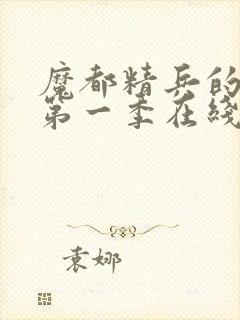 魔都精兵的
第一季在线
袁娜